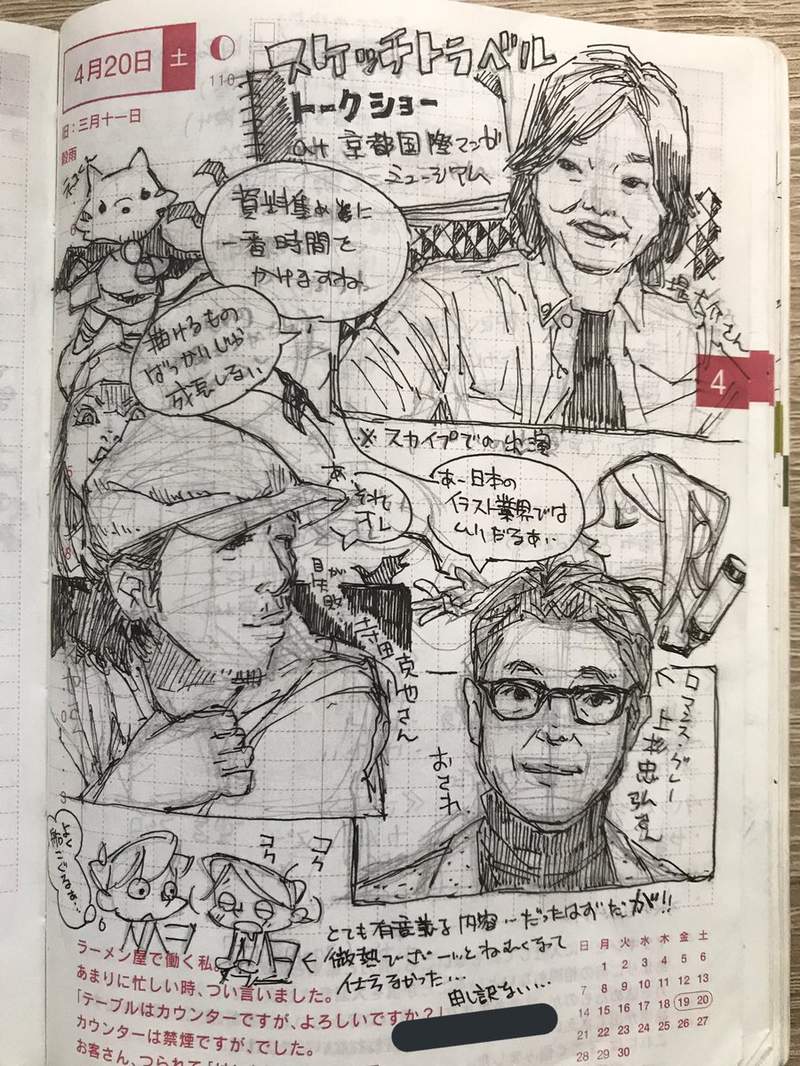 4月20日 土
110
旧:三月十一日
穀雨
スケッチトラベル
トークショー
at 京都国際マンガ
ミュージアム
資料集めに
一番時間を
かけますね
描けるもの
ばっかいじゃ
成長しない
堤大介さん
4
※スカイプでの出演
あ、
それ
オレ
あー日本の
イラスト業界では
ムリだなあ…
寺田克也さん
ロマンス・グレー
上杉忠弘さん
おされ
よく
コク
コク
とても有意義な内容…だったはずだが!!
微熱でずーっとねむくなって
仕方なかった…
申し訳ない…
ラーメン屋で働く私。
あまりに忙しい時、つい言いました。
「テーブルはカウンターですが、よろしいですか?」
カウンターは禁煙ですが、でした。
お客さん、つられて
日 月 火 水 木 金 土
1 2 3 4 5 6
7 8 9 10 11 12 13
14 15 16 17 18 19 20
21 22 23 24 25 26 27
28 29 30